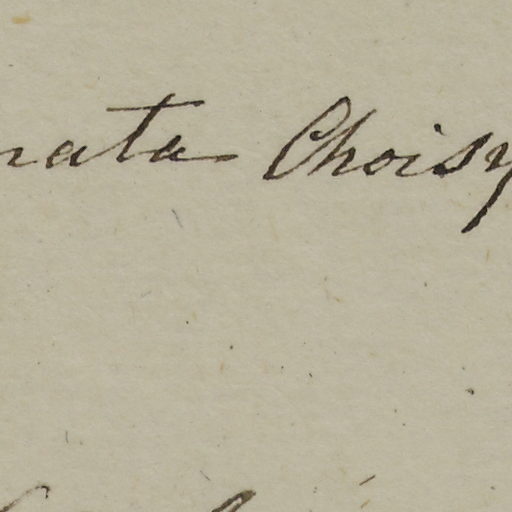 nata Choisy